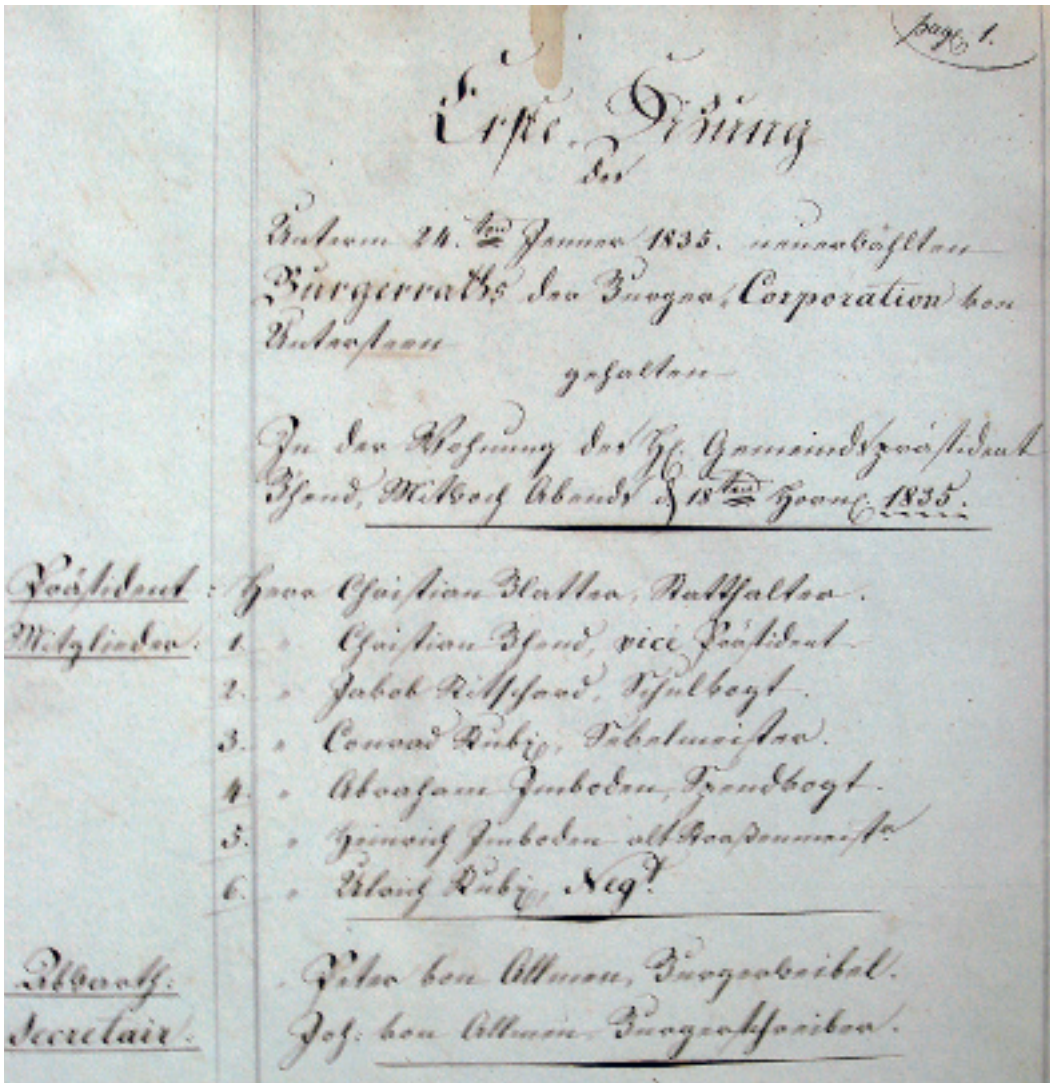 page 1.
Erste Sitzung
des
Unterm 24.ten Jenner 1835. neuerwählten
Burgerraths der Burger, Corporation von
Unterseen
gehalten
In der Wohnung des H. Gemeindspräsident
Bhend, Mitwoch Abends d. 18ten Horn. 1835.
Präsident : Herr Christian Blatter, Statthalter.
Mitglieder. 1. " Christian Bhend, vice Präsident
2. " Jakob Ritschard, Schulvogt.
3. " Conrad Rubi, Sekelmeister.
4. " Abraham Imboden, Spendvogt.
5. " Heinrich Imboden alt Straßenmeistr
6. " Ulrich Rubi, Negt.
Abwarth: " Peter von Allmen, Burgerweibel.
Secretair. Joh: von Allmen Burgerschreiber.